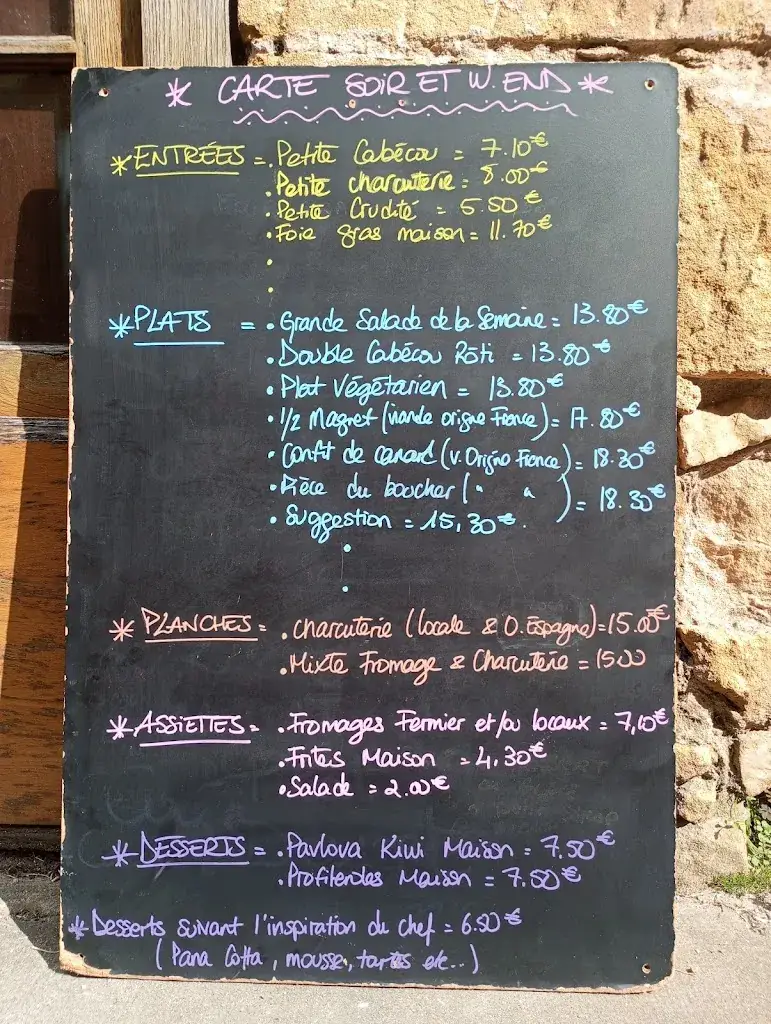 * CARTE SOIR ET W.END *
* ENTRÉES = . Petite Cabécou = 7.10€
. Petite charcuterie = 8.00€
. Petite Crudité = 5.50€
. Foie gras maison = 11.70€
* PLATS = . Grande Salade de la Semaine = 13.80€
. Double Cabécou Rôti = 13.80€
. Plat Végétarien = 13.80€
. 1/2 Magret (viande origine France) = 17.80€
. Confit de canard (v. Origine France) = 18.30€
. Pièce du boucher ( " " ) = 18.30€
. Suggestion = 15,30€
* PLANCHES = . Charcuterie (locale & O. Espagne) = 15.00€
. Mixte Fromage & Charcuterie = 15.00
* ASSIETTES = . Fromages Fermier et/ou locaux = 7,10€
. Frites Maison = 4,30€
. Salade = 2.00€
* DESSERTS = . Pavlova Kiwi Maison = 7.50€
. Profiteroles Maison = 7.50€
* Desserts suivant l'inspiration du chef = 6.50€
(Pana Cotta, mousse, tartes etc...)